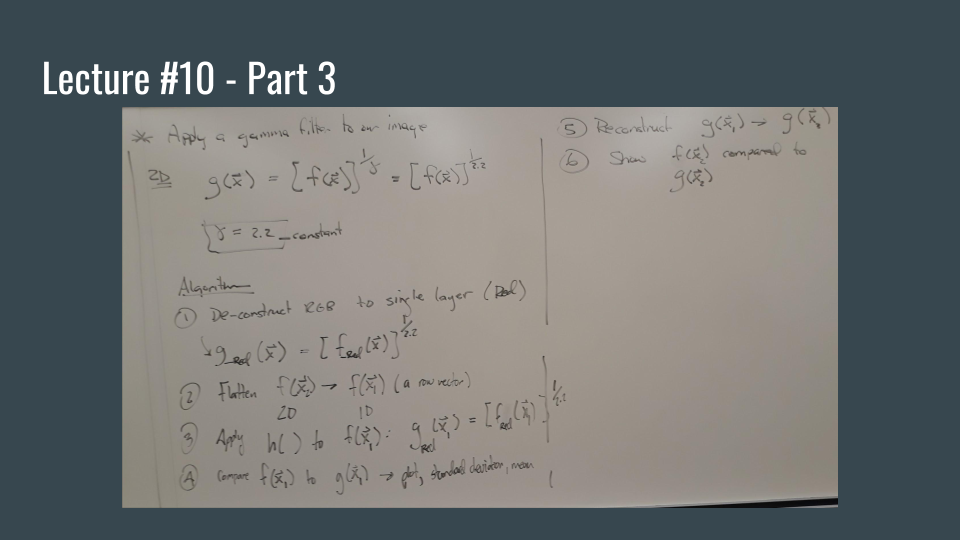 Lecture #10 - Part 3
* Apply a gamma filter to our image
2D g(x⃗) = [f(x⃗)]^1/γ = [f(x⃗)]^1/2.2
γ = 2.2 - constant
Algorithm
① De-construct RGB to single layer (Red)
↳ g_Red(x⃗) = [f_Red(x⃗)]^1/2.2
② Flatten f(x⃗₂) → f(x⃗₁) (a row vector)
2D 1D
③ Apply h( ) to f(x⃗₁): g_Red(x⃗₁) = [f_Red(x⃗₁)]^1/2.2
④ Compare f(x⃗₁) to g(x⃗₁) → plot, standard deviation, mean
⑤ Reconstruct g(x⃗₁) → g(x⃗₂)
⑥ Show f(x⃗₂) compared to
g(x⃗₂)